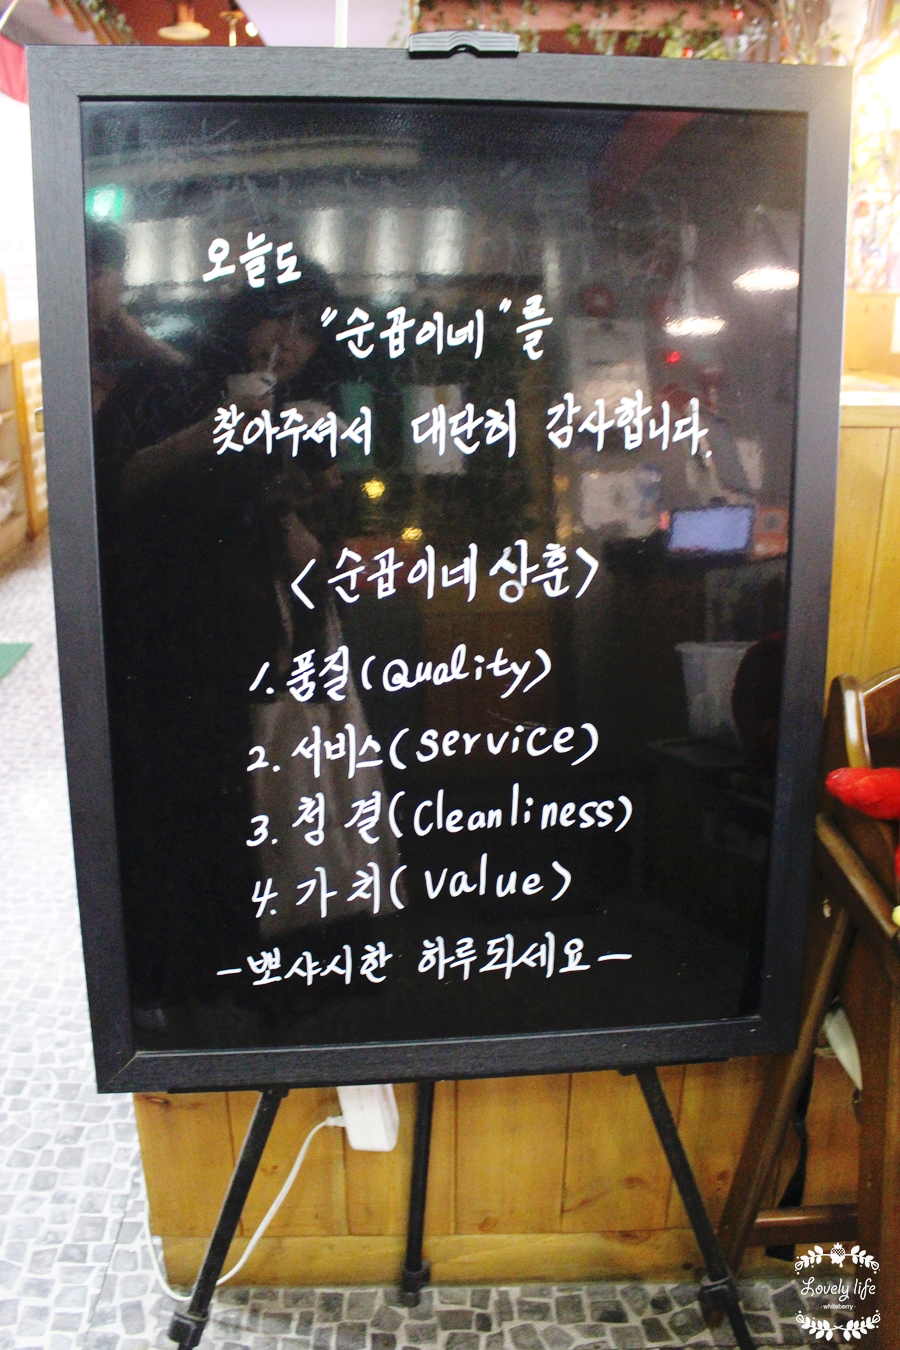 오늘도
"순곱이네"를
찾아주셔서 대단히 감사합니다.
<순곱이네 상훈>
1. 품질(Quality)
2. 서비스(service)
3. 청결(Cleanliness)
4. 가치(value)
-뽀샤시한 하루되세요-
Lovely life
·whiteberry·